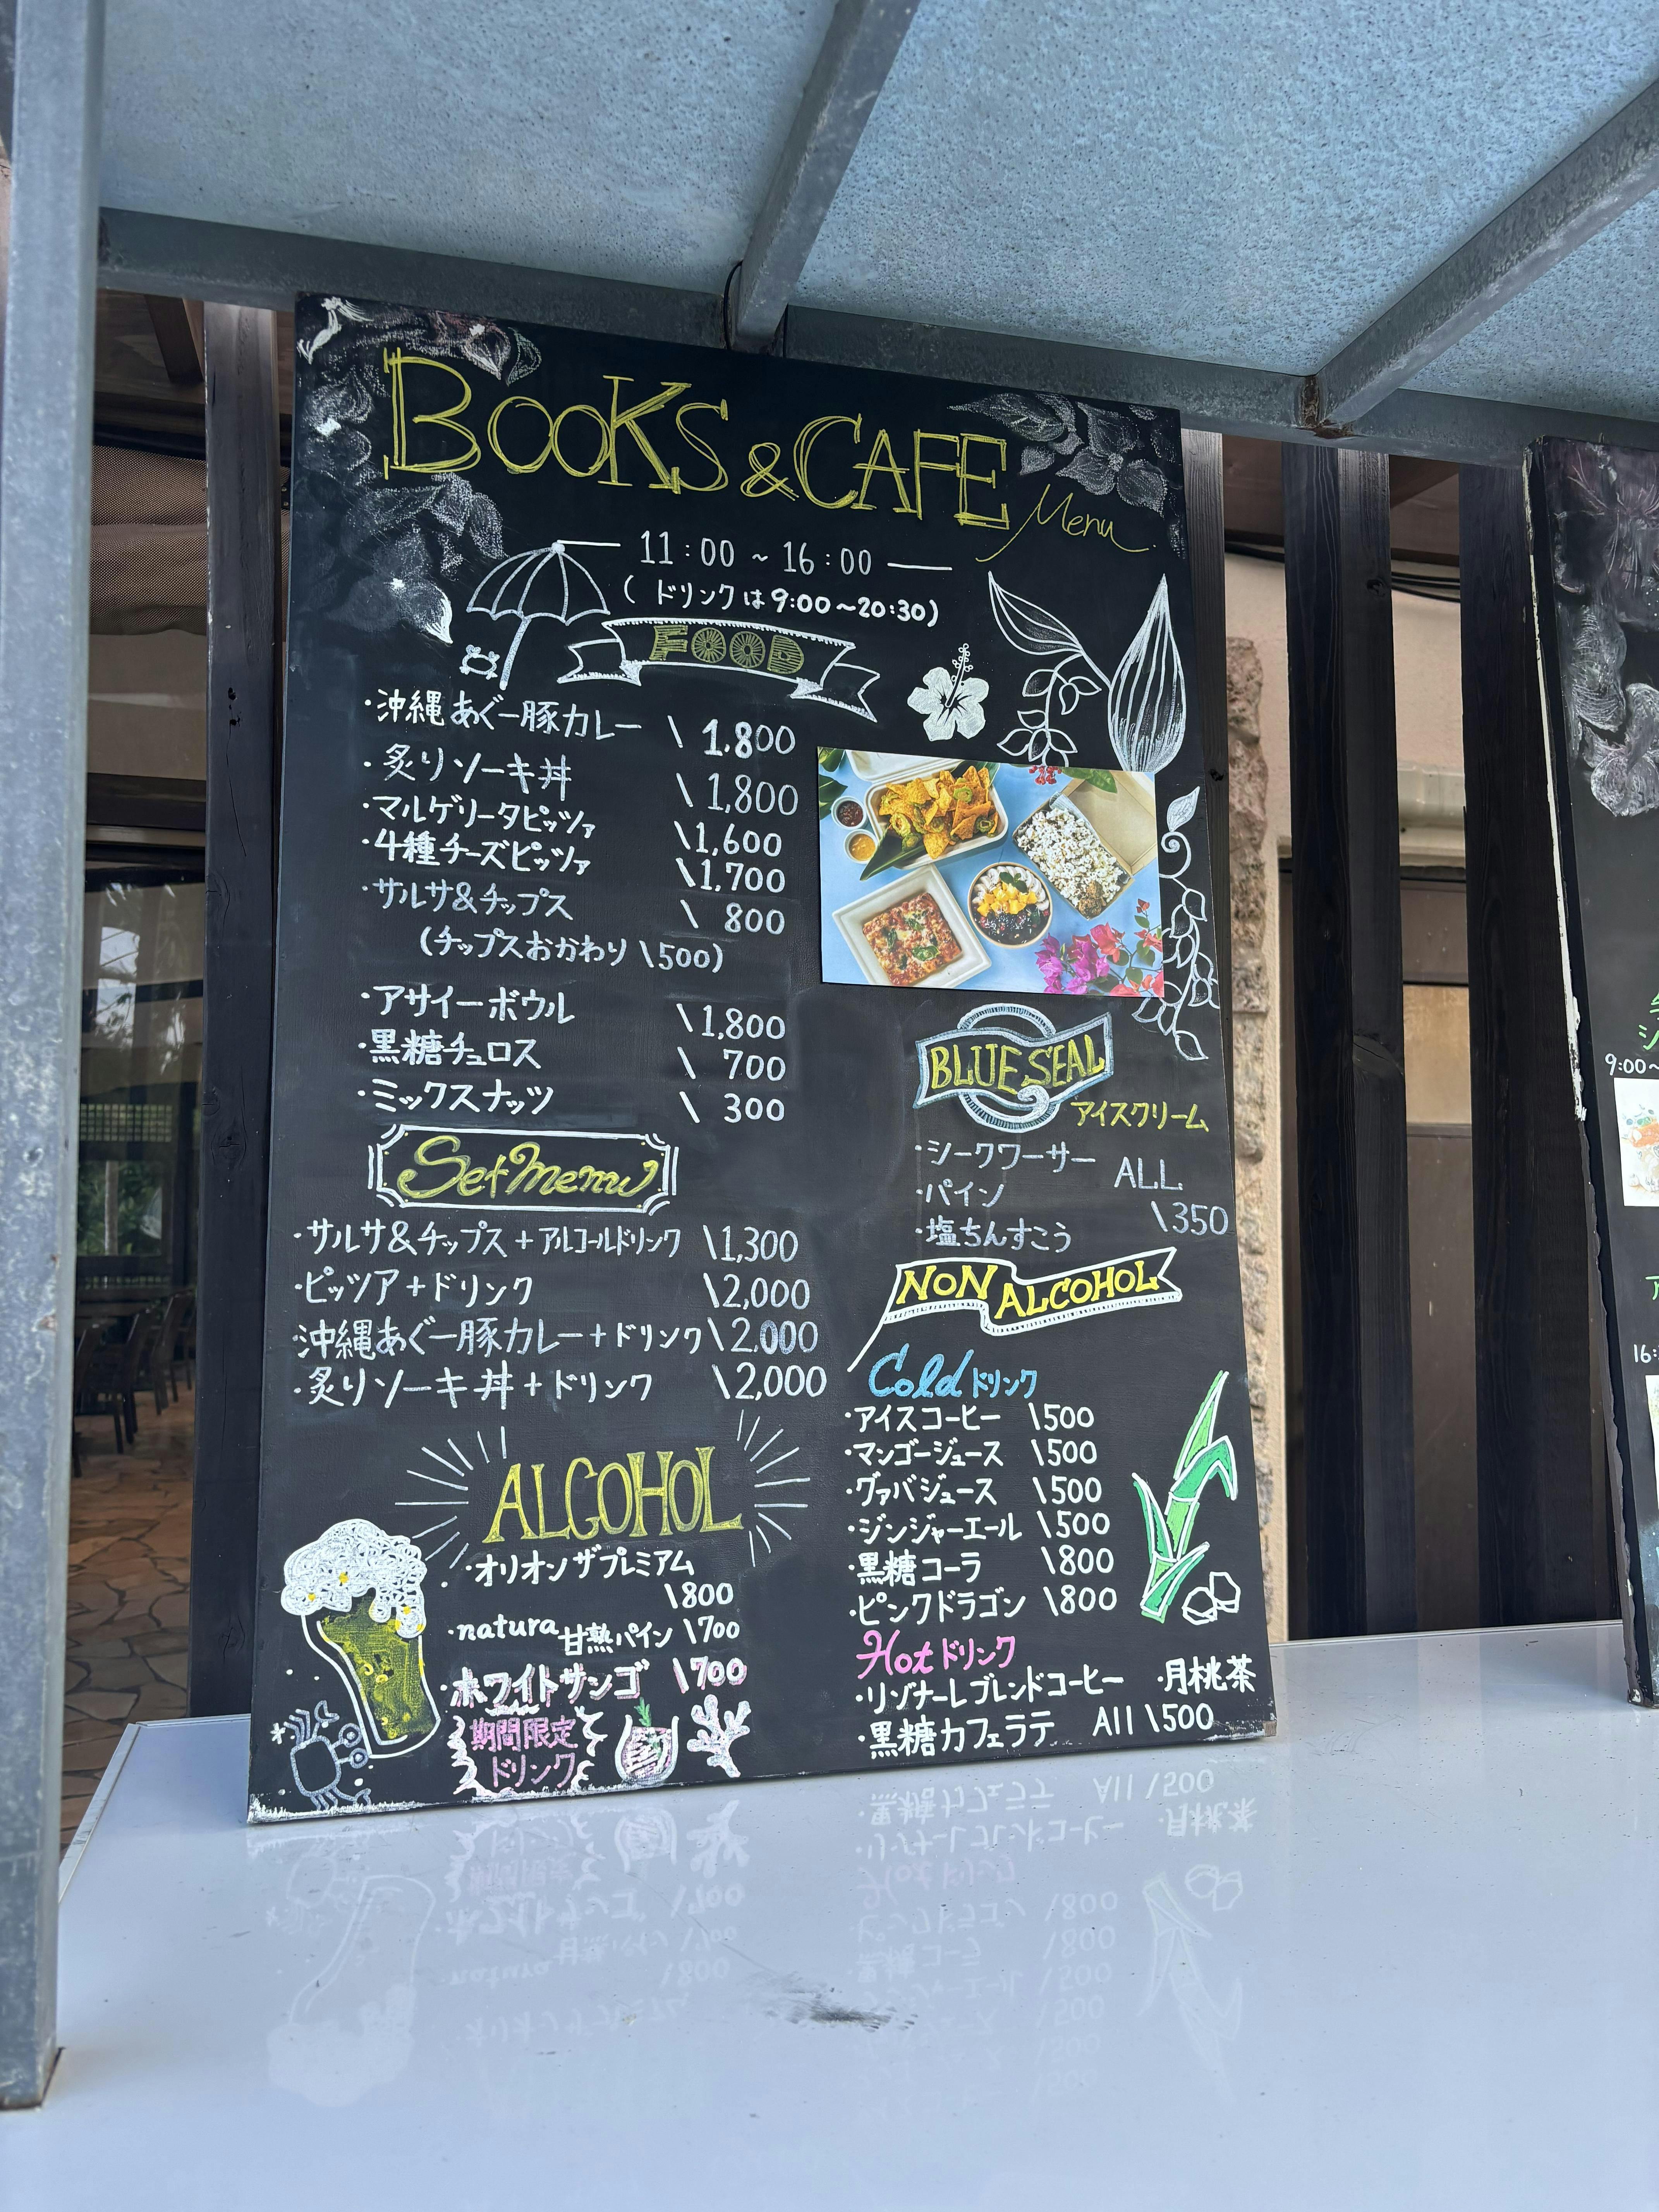 BOOKS & CAFE
Menu
11:00 ~ 16:00
(ドリンクは9:00〜20:30)
FOOD
・沖縄あぐー豚カレー \1.800
・炙りソーキ丼 \1,800
・マルゲリータピッツァ \1,600
・4種チーズピッツァ \1,700
・サルサ&チップス \800
(チップスおかわり\500)
・アサイーボウル \1,800
・黒糖チュロス \700
・ミックスナッツ \300
Set Menu
・サルサ&チップス+アルコールドリンク \1,300
・ピッツア+ドリンク \2,000
・沖縄あぐー豚カレー+ドリンク \2.000
・炙りソーキ丼+ドリンク \2,000
ALCOHOL
・オリオンザプレミアム
\800
・natura 甘熟パイン \700
・ホワイトサンゴ \700
期間限定
ドリンク
BLUE SEAL
アイスクリーム
・シークワーサー
・パイン
・塩ちんすこう
ALL
\350
NON ALCOHOL
Cold ドリンク
・アイスコーヒー \500
・マンゴージュース \500
・グァバジュース \500
・ジンジャーエール \500
・黒糖コーラ \800
・ピンクドラゴン \800
Hot ドリンク
・リゾナーレブレンドコーヒー ・月桃茶
・黒糖カフェラテ All \500
9:00~
16: